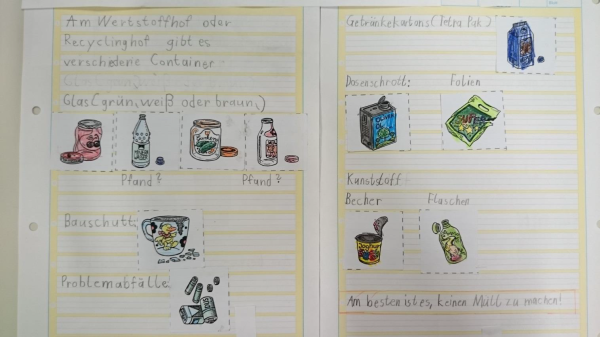 Am Wertstoffhof oder
Recyclinghof gibt es
verschedene Container
Glas(grün, weiß oder braun,)
Pfand? Pfand?
Bauschutt
Problemabfälle
Getränkekartons(Tetra Pak)
Dosenschrott: Folien
Kunststoff
Becher Flaschen
Am besten ist es, keinen Müll zu machen!